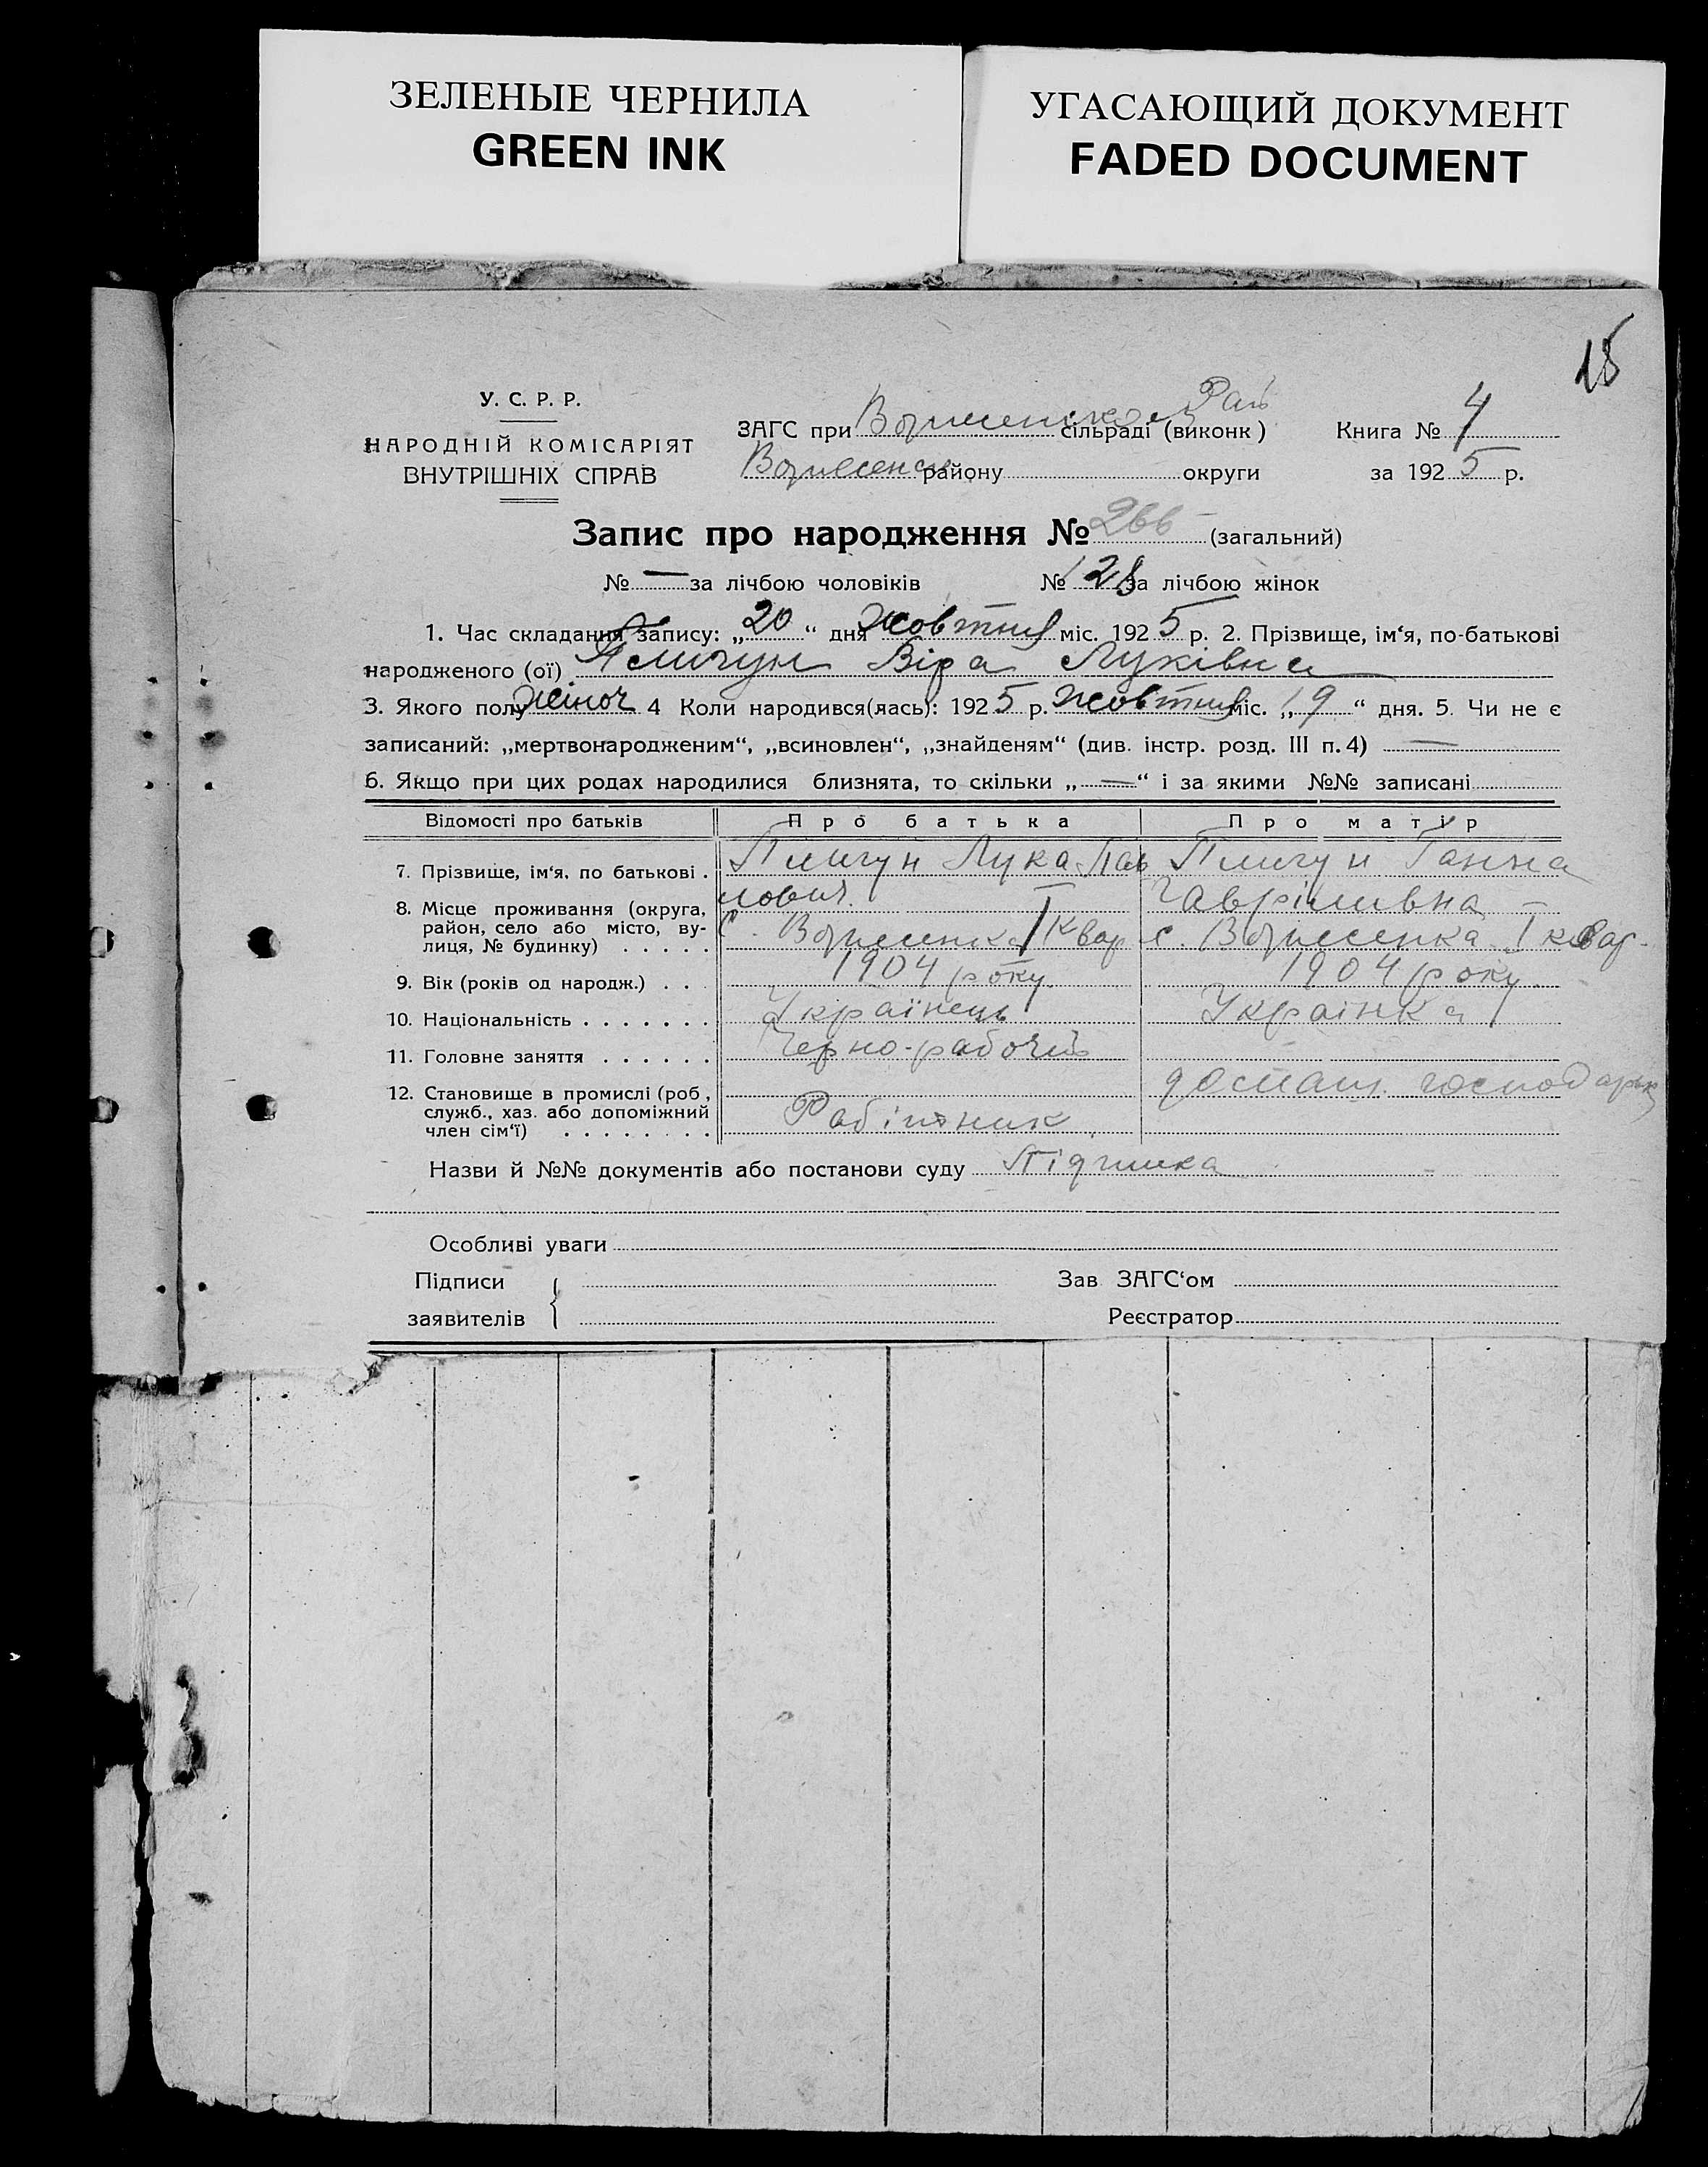 ЗЕЛЕНЫЕ ЧЕРНИЛА
GREEN INK
УГАСАЮЩИЙ ДОКУМЕНТ
FADED DOCUMENT
15
У. С. Р. Р.
НАРОДНІЙ КОМІСАРІЯТ
ВНУТРІШНІХ СПРАВ
Рай
ЗАГС при Вознесенском сільраді (виконк)
Вознесенск району округи
Книга № 4
за 1925 р.
Запис про народження № 266 (загальний)
№ — за лічбою чоловіків № 128 за лічбою жінок
1. Час складання запису: „20“ дня жовтня міс. 1925 р. 2. Прізвище, ім‘я, по-батькові
народженого (ої) Віра Луківна
3. Якого полу жіноч 4 Коли народився(лась): 1925 р. жовтня міс. „19“ дня. 5. Чи не є
записаний: „мертвонародженим“, „всиновлен“, „знайденям“ (див. інстр. розд. III п. 4) —
6. Якщо при цих родах народилися близнята, то скільки „—“ і за якими №№ записані
Відомості про батьків Про батька Про матір
7. Прізвище, ім‘я, по батькові . Лука Пав Ганна
лович. Гавріливна
8. Місце проживання (округа, район, село або місто, вулиця, № будинку) . . . . . С. Вознесенка I квар с. Вознесенка I квар.
9. Вік (років од народж.) . . . 1904 року 1904 року
10. Національність . . . . . . . Українець Українка
11. Головне заняття . . . . . . Черно-рабочий
12. Становище в промислі (роб, служб., хаз. або допоміжний член сім‘ї) . . . . . . . . Робітник господарк
Назви й №№ документів або постанови суду
Особливі уваги
Підписи
заявителів
Зав. ЗАГС‘ом
Реєстратор